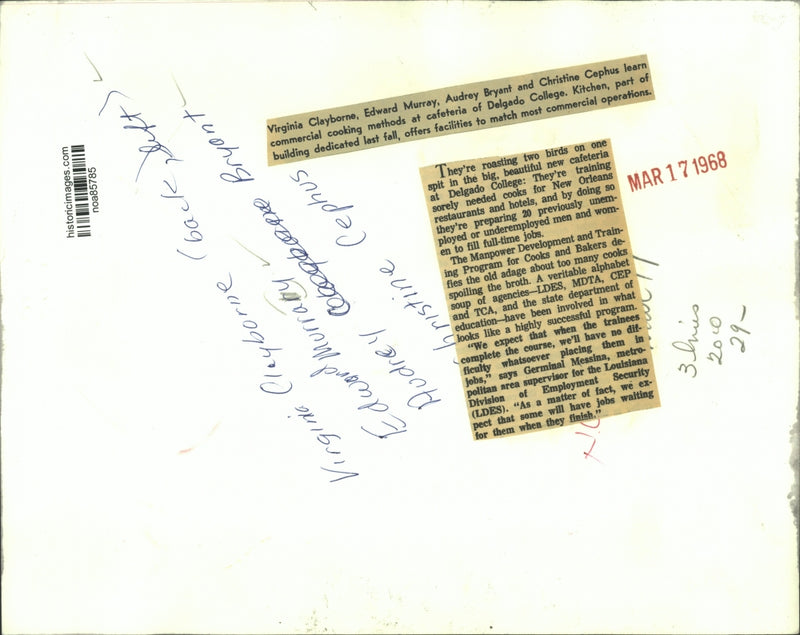 Virginia Clayborne, Edward Murray, Audrey Bryant and Christine Cephus learn
commercial cooking methods at cafeteria of Delgado College. Kitchen, part of
building dedicated last fall, offers facilities to match most commercial operations.
They're roasting two birds on one
spit in the big, beautiful new cafeteria
at Delgado College: They're training
sorely needed cooks for New Orleans
restaurants and hotels, and by doing so
they're preparing 20 previously unem-
ployed or underemployed men and wom-
en to fill full-time jobs.
The Manpower Development and Train-
ing Program for Cooks and Bakers de-
fies the old adage about too many cooks
spoiling the broth. A veritable alphabet
soup of agencies—LDES, MDTA, CEP
and TCA, and the state department of
education—have been involved in what
looks like a highly successful program.
"We expect that when the trainees
complete the course, we'll have no dif-
ficulty whatsoever placing them in
jobs," says Germinal Messina, metro-
politan area supervisor for the Louisiana
Division of Employment Security
(LDES). "As a matter of fact, we ex-
pect that some will have jobs waiting
for them when they finish."
MAR 17 1968
historicimages.com
noa85785
Virginia Clayborne (back left)
Edward Murray
Audrey Bryant
Christine Cephus
2010
29-